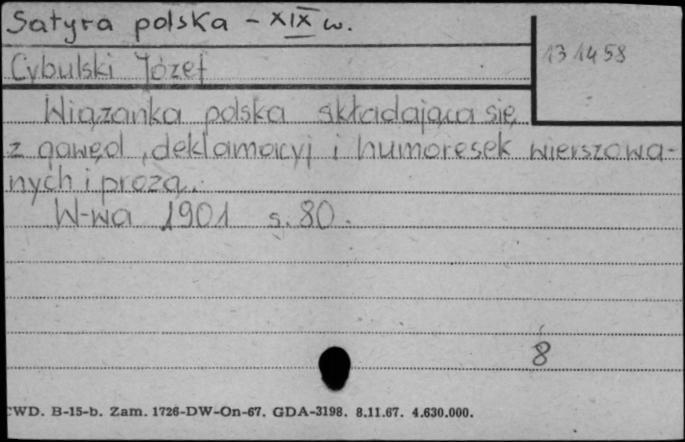 Satyra polska - XIX w.
131458
Cybulski Józef
Wiązanka polska składająca się
z gawęd, deklamacyj i humoresek wierszowa-
nych i prozą.
W-wa 1901 s. 80.
8
CWD. B-15-b. Zam. 1726-DW-On-67. GDA-3198. 8.11.67. 4.630.000.